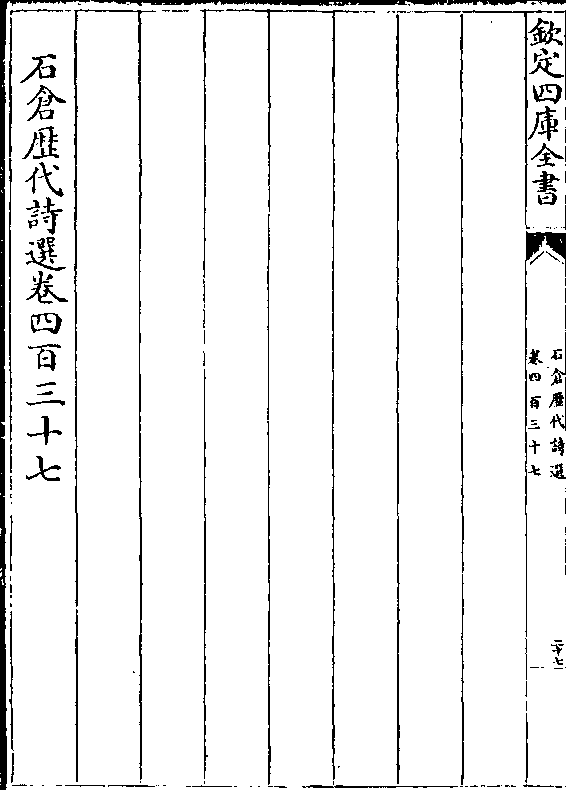 欽定四庫全書
石倉歷代詩選
卷四百三十七
二十七
石倉歷代詩選卷四百三十七